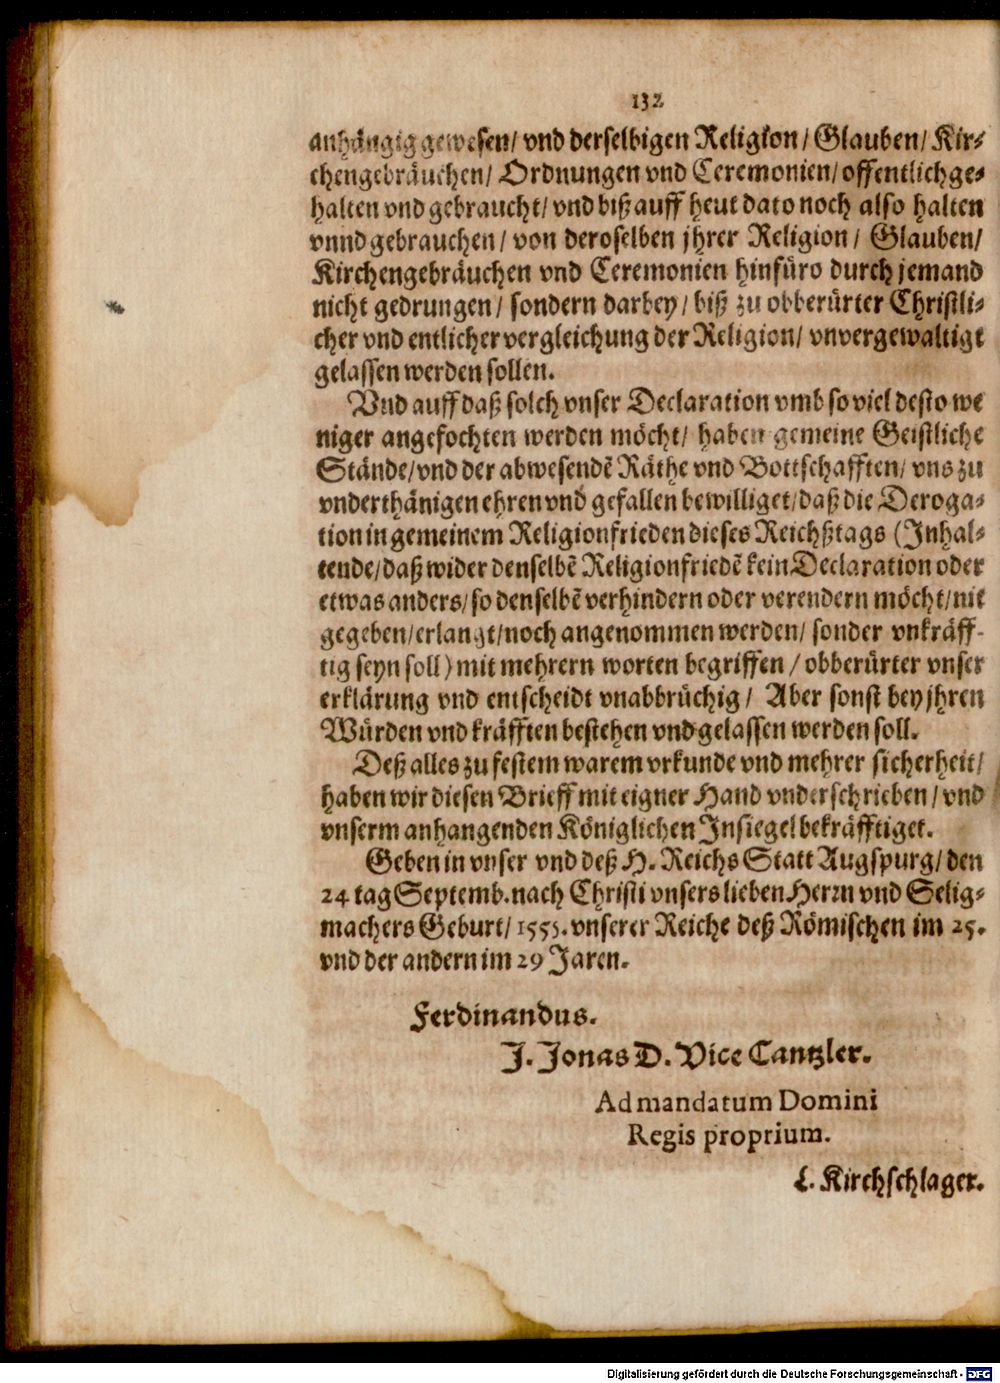 132
anhängig gewesen/ vnd derselbigen Religion/ Glauben/ Kir-
chengebräuchen/ Ordnungen vnd Ceremonien/ offentlich ge-
halten vnd gebraucht/ vnd biß auff heut dato noch also halten
vnnd gebrauchen/ von deroselben jhrer Religion/ Glauben/
Kirchengebräuchen vnd Ceremonien hinfüro durch jemand
nicht gedrungen/ sondern darbey/ biß zu obberürter Christli-
cher vnd entlicher vergleichung der Religion/ vnvergewaltigt
gelassen werden sollen.
Vnd auff daß solch vnser Declaration vmb so viel desto we
niger angefochten werden möcht/ haben gemeine Geistliche
Stände/ vnd der abwesendẽ Räthe vnd Bottschafften/ vns zu
vnderthänigen ehren vnd gefallen bewilliget/ daß die Deroga-
tion in gemeinem Religionfrieden dieses Reichßtags (Inhal-
tende/ daß wider denselbẽ Religionfriedẽ kein Declaration oder
etwas anders/ so denselbẽ verhindern oder verendern möcht/ nit
gegeben/ erlangt/ noch angenommen werden/ sonder vnkräff-
tig seyn soll) mit mehrern worten begriffen/ obberürter vnser
erklärung vnd entscheidt vnabbrüchig/ Aber sonst bey jhren
Würden vnd kräfften bestehen vnd gelassen werden soll.
Deß alles zu festem warem vrkunde vnd mehrer sicherheit/
haben wir diesen Brieff mit eigner Hand vnderschrieben/ vnd
vnserm anhangenden Königlichen Insiegel bekräfftiget.
Geben in vnser vnd deß H. Reichs Statt Augspurg/ den
24 tag Septemb. nach Christi vnsers lieben Herrn vnd Selig-
machers Geburt/ 1555. vnserer Reiche deß Römischen im 25.
vnd der andern im 29 Jaren.
Ferdinandus.
J. Jonas D. Vice Cantzler.
Ad mandatum Domini
Regis proprium.
L. Kirchschlager.
Digitalisierung gefördert durch die Deutsche Forschungsgemeinschaft - DFG